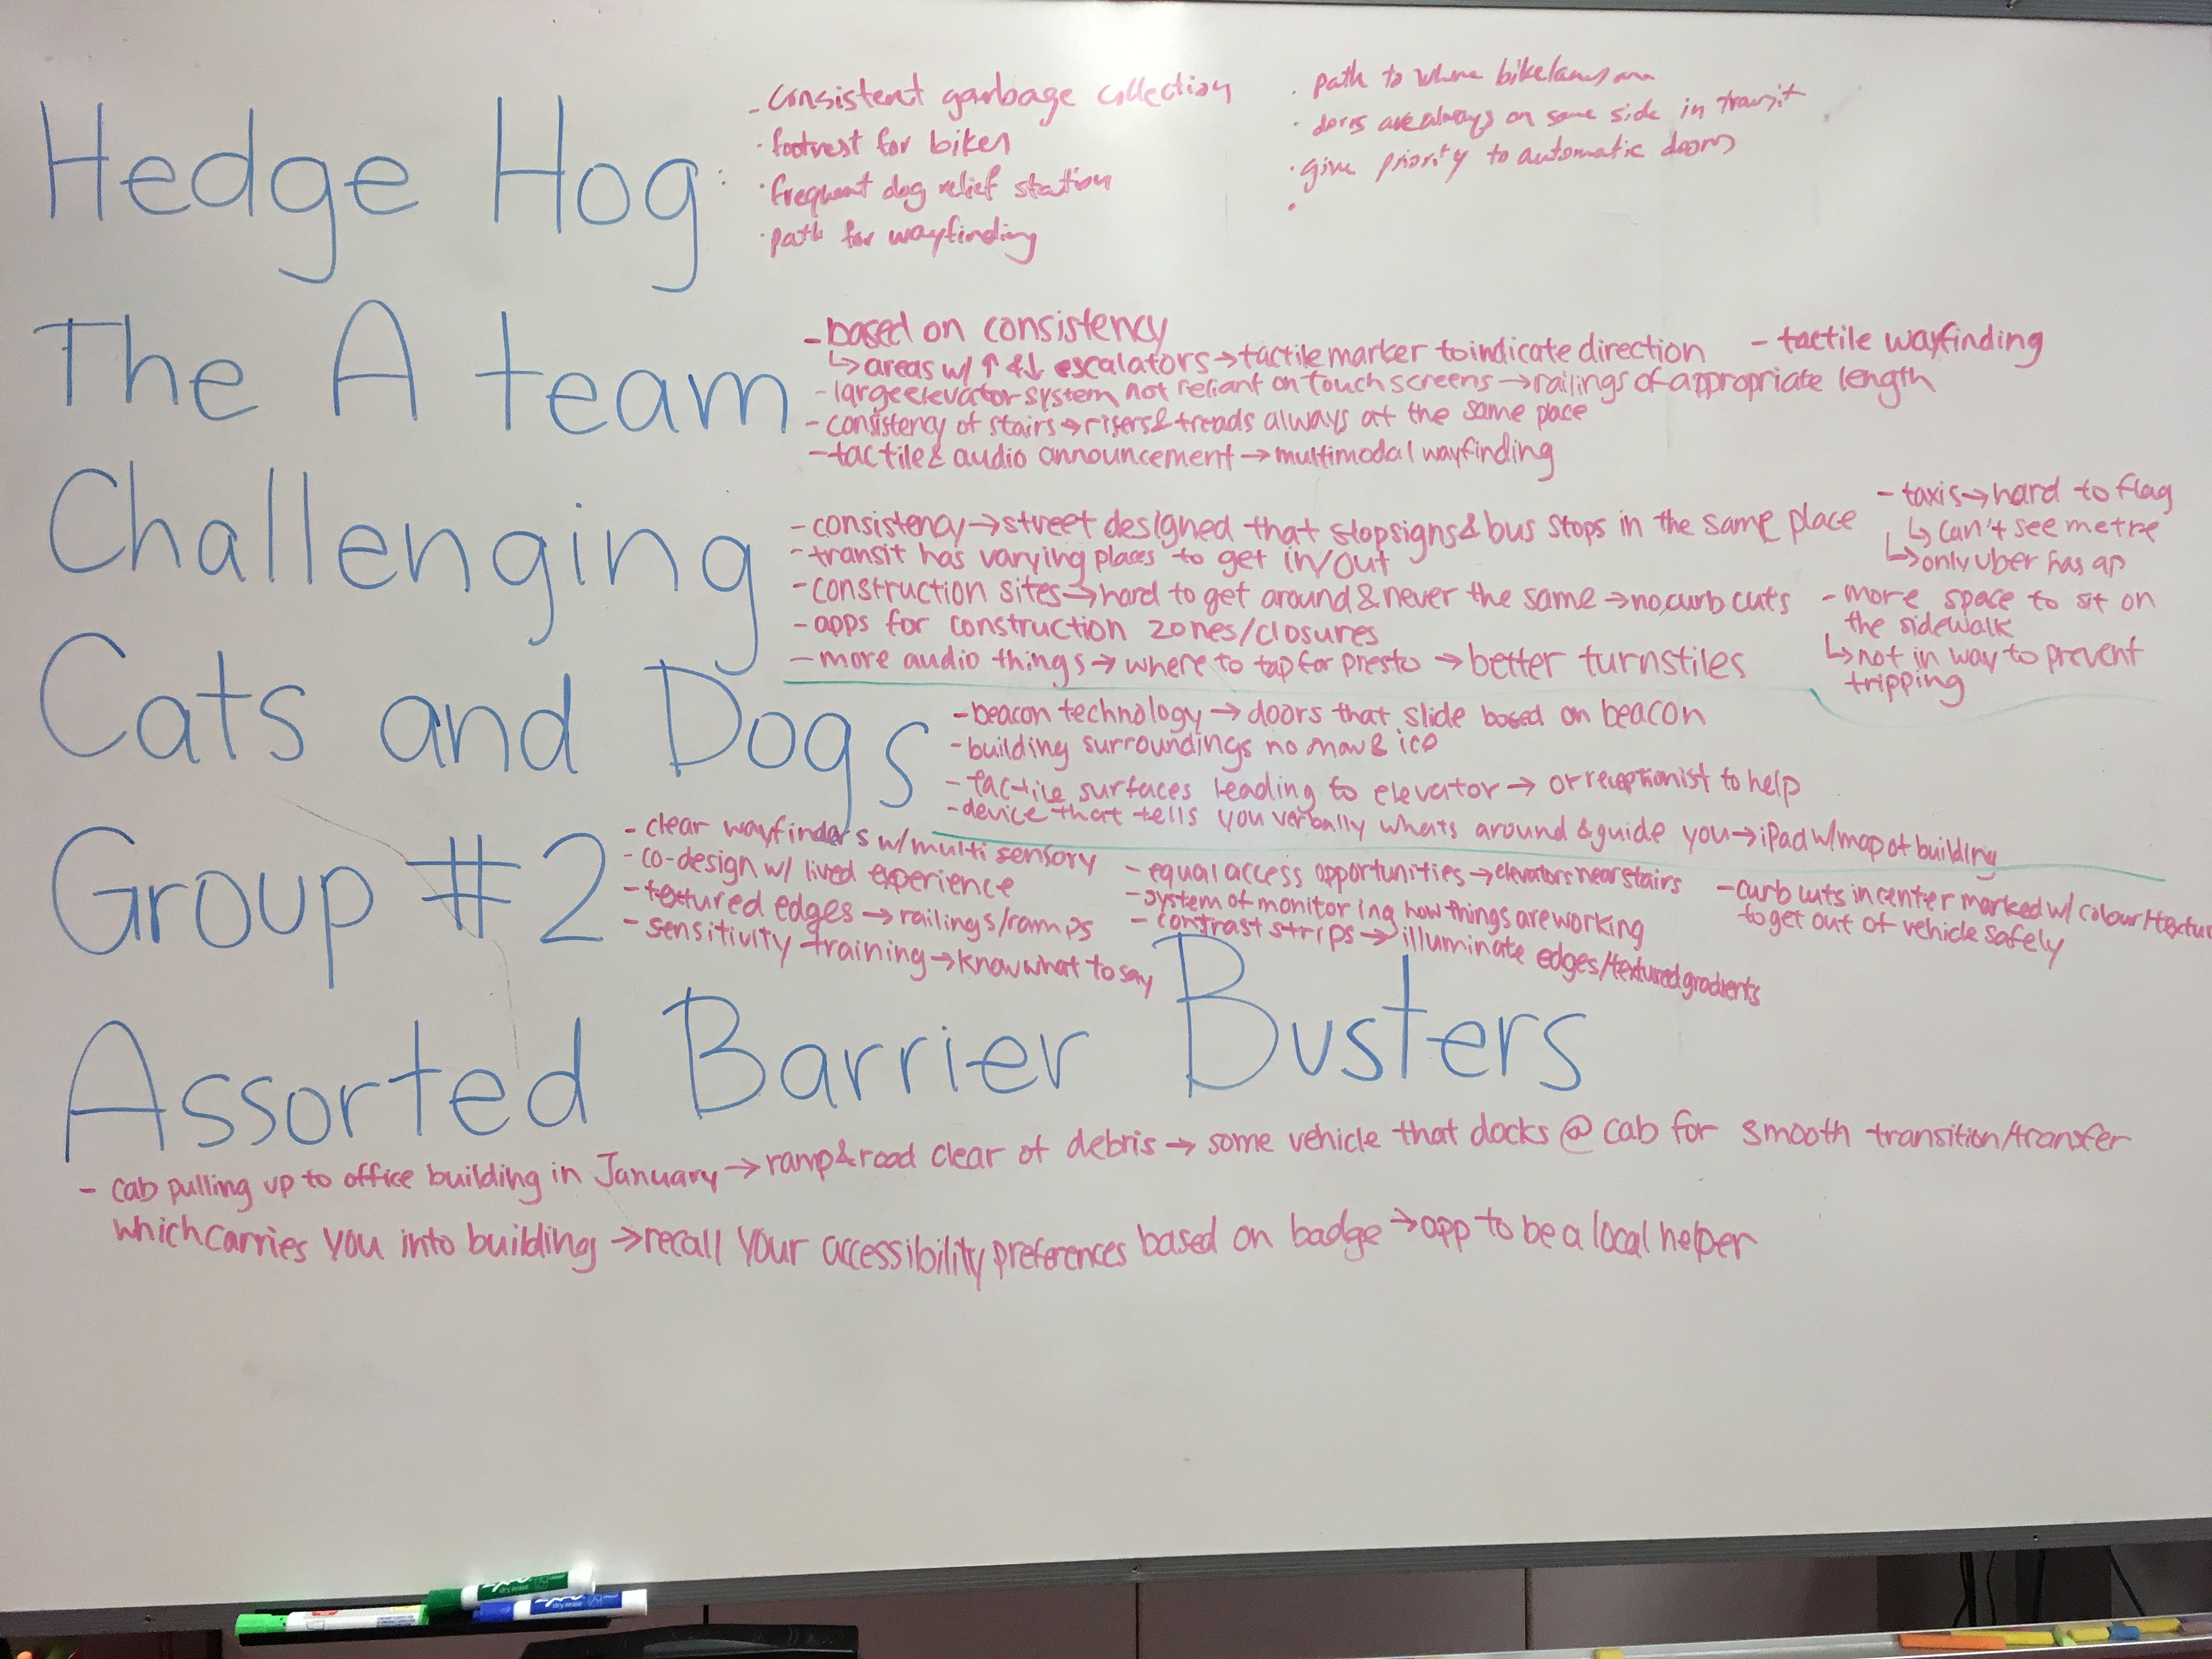 Hedge Hog :
- consistent garbage collection
· footrest for bikes
· frequent dog relief station
· path for wayfinding
· path to where bikelanes are
· doors are always on same side in transit
· give priority to automatic doors
·
The A team
- based on consistency
↳ areas w/ ↑ & ↓ escalators → tactile marker to indicate direction
- tactile wayfinding
- large elevator system not reliant on touch screens → railings of appropriate length
- consistency of stairs → risers & treads always at the same place
- tactile & audio announcement → multimodal wayfinding
Challenging
- consistency → street designed that stop signs & bus stops in the same place
- transit has varying places to get in/out
- construction sites → hard to get around & never the same → no curb cuts
- apps for construction zones/closures
- more audio things → where to tap for presto → better turnstiles
- taxis → hard to flag
↳ can't see metre
↳ only uber has ap
- more space to sit on
the sidewalk
↳ not in way to prevent
tripping
Cats and Dogs
- beacon technology → doors that slide based on beacon
- building surroundings no & ice
- tactile surfaces leading to elevator → or receptionist to help
- device that tells you verbally whats around & guide you → iPad w/ map of building
Group #2
- clear wayfinders w/ multi sensory
- co-design w/ lived experience
- textured edges → railings/ramps
- sensitivity training → know what to say
- equal access opportunities → elevators near stairs
- system of monitoring how things are working
- contrast strips → illuminate edges/textured gradients
- curb cuts in center marked w/ colour/textur
to get out of vehicle safely
Assorted Barrier Busters
- cab pulling up to office building in January → ramp & road clear of debris → some vehicle that docks @ cab for smooth transition/transfer
which carries you into building → recall your accessibility preferences based on badge → app to be a local helper